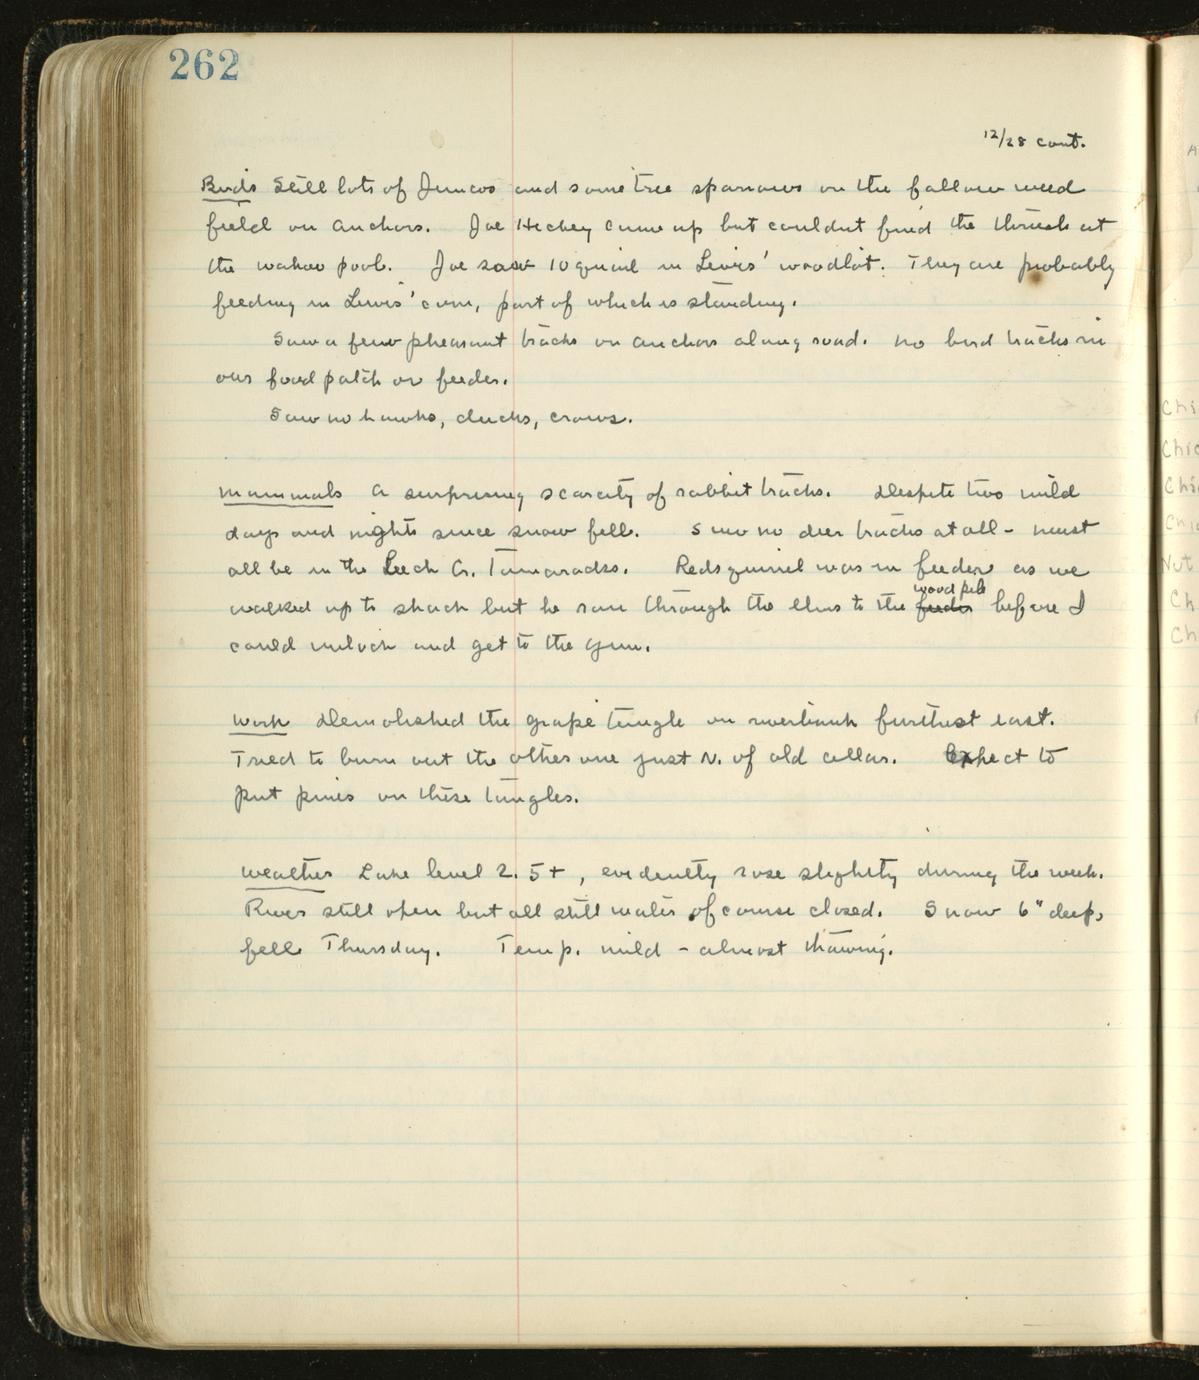 262
12/28 cont.
Birds Still lots of Juncos and some tree sparrows on the fallow weed
field on Anchors. Joe Hickey came up but couldnt find the thrush at
the wahoo pool. Joe saw 10 quail in Lewis' woodlot. They are probably
feeding in Lewis' corn, part of which is standing.
Saw a few pheasant tracks on Anchors along road. no bird tracks in
our food patch or feeder.
Saw no hawks, ducks, crows.
Mammals A surprising scarcity of rabbit tracks. Despite two mild
days and nights since snow fell. Saw no deer tracks at all - must
all be in the Leech Cr. Tamaracks. Red squirrel was in feeder as we
wood pile
walked up to shack but he ran through the elms to the feeder before I
could unlock and get to the gun.
Work Demolished the grape tangle on riverbank furthest east.
Tried to burn out the other one just N. of old cellar. Expect to
put pines on these tangles.
Weather Lake level 2.5+, evidently rose slightly during the week.
River still open but all still water of course closed. Snow 6" deep,
fell Thursday. Temp. mild - almost thawing.
Chi
Chic
Chi
Chic
Nut
Ch
Ch